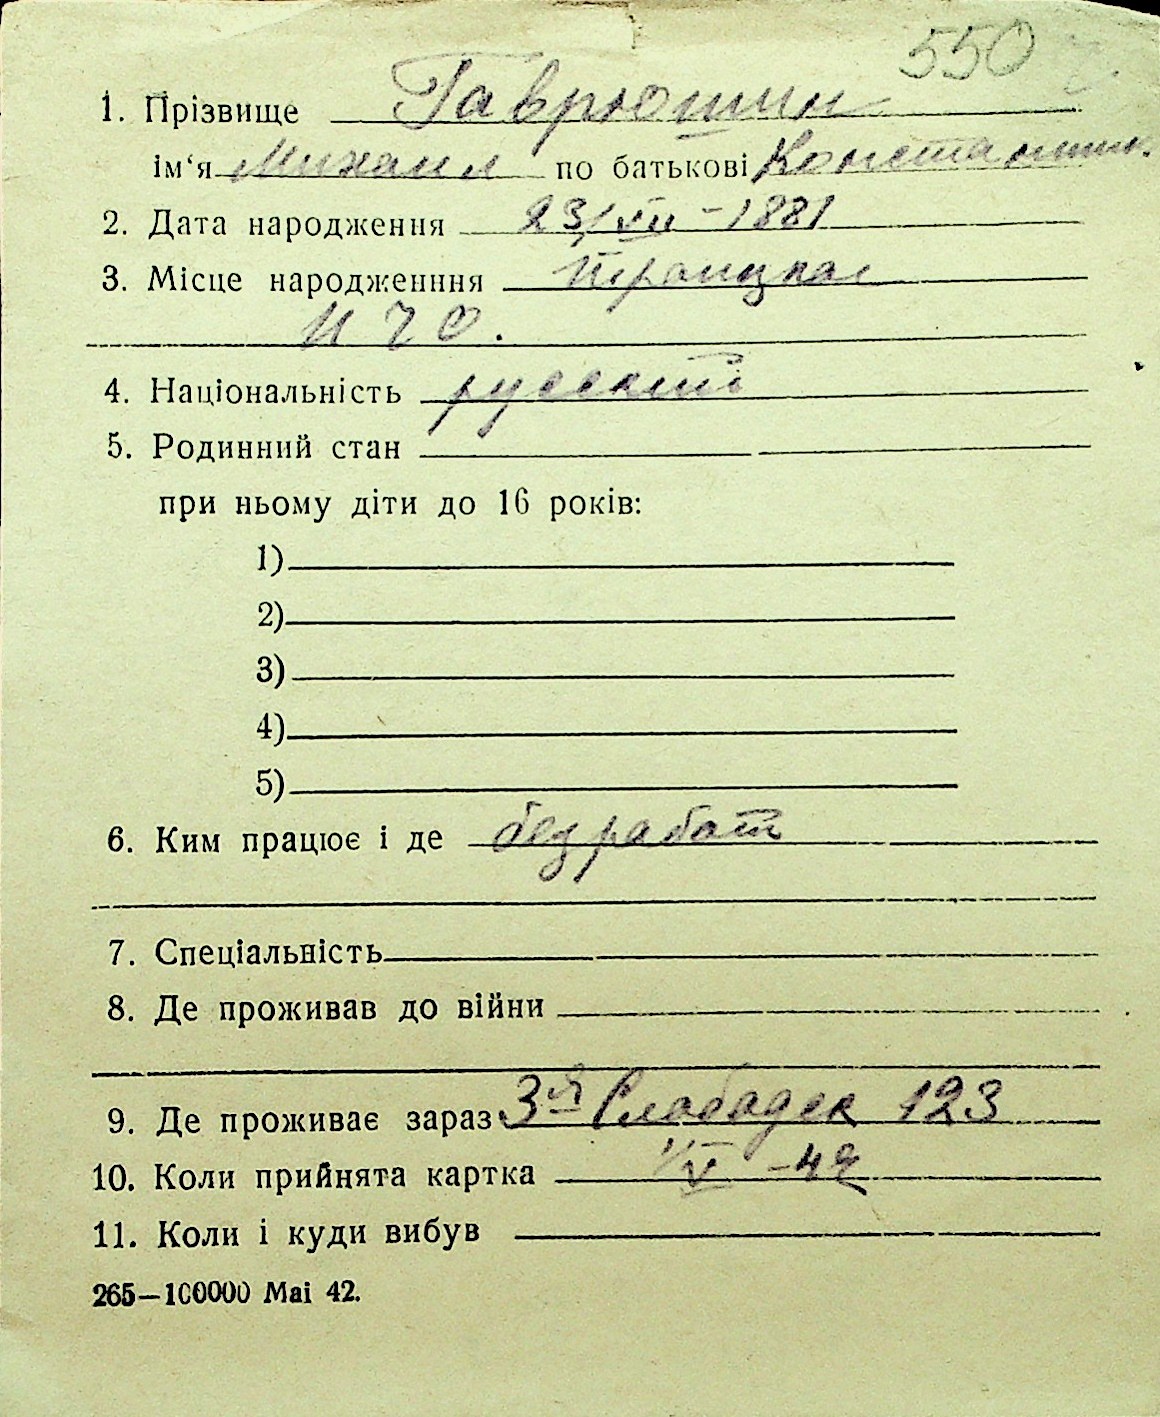 550
1. Прізвище Гаврюшин
ім'я Михаил по батькові Константин.
2. Дата народження 23/VII - 1881
3. Місце народженння Троицкая
И Ч О.
4. Національність русский
5. Родинний стан
при ньому діти до 16 років:
1)
2)
3)
4)
5)
6. Ким працює і де безработ
7. Спеціальність
8. Де проживав до війни
9. Де проживає зараз 3-я Слободск 123
10. Коли прийнята картка 1/V - 42
11. Коли і куди вибув
265—100000 Mai 42.